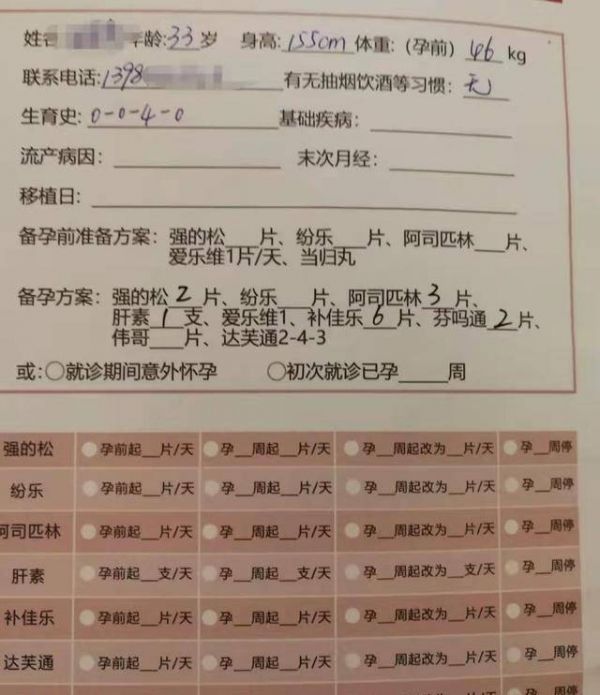 姓名 年龄:33岁 身高:155cm 体重:(孕前)46kg
联系电话:1398 有无抽烟饮酒等习惯:无
生育史:0-0-4-0 基础疾病:
流产病因: 末次月经:
移植日:
备孕前准备方案:强的松__片、纷乐__片、阿司匹林__片、
爱乐维1片/天、当归丸
备孕方案:强的松2片、纷乐__片、阿司匹林3片、
肝素1支、爱乐维1、补佳乐6片、芬吗通2片、
伟哥__片、达芙通2-4-3
或:○就诊期间意外怀孕 ○初次就诊已孕__周
强的松 孕前起__片/天 孕__周起__片/天 孕__周起改为__片/天 孕__周停
纷乐 孕前起__片/天 孕__周起__片/天 孕__周起改为__片/天 孕__周停
阿司匹林 孕前起__片/天 孕__周起__片/天 孕__周起改为__片/天 孕__周停
肝素 孕前起__支/天 孕__周起__支/天 孕__周起改为__片/天 孕__周停
补佳乐 孕前起__片/天 孕__周起__片/天 孕__周起改为__片/天 孕__周停
达芙通 孕前起__片/天 孕__周起__片/天 孕__周起改为__片/天 孕__周停